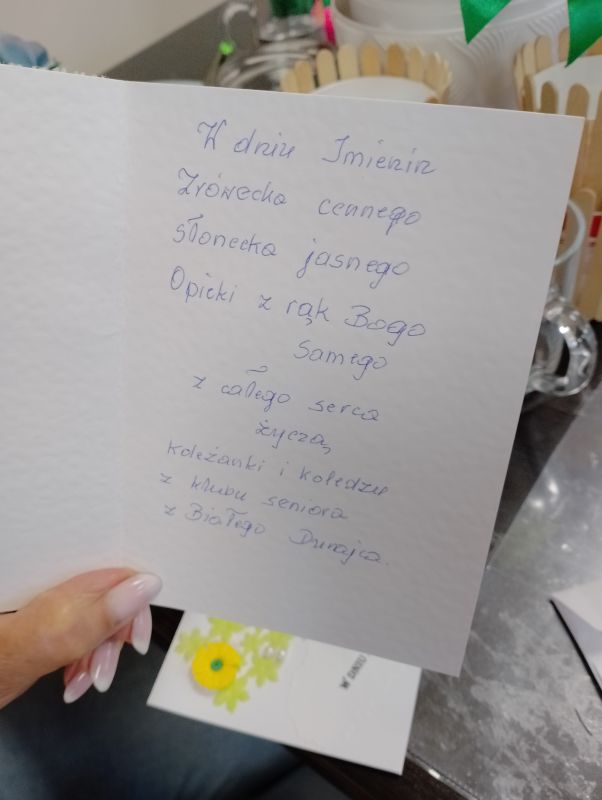 W dniu Imienin
Zrówecka cennego
Słonecka jasnego
Opieki z rąk Bogo
Samego
z całego serca
życzą
koleżanki i koledzy
z klubu seniora
z Białego Dunajca.
W DNIU